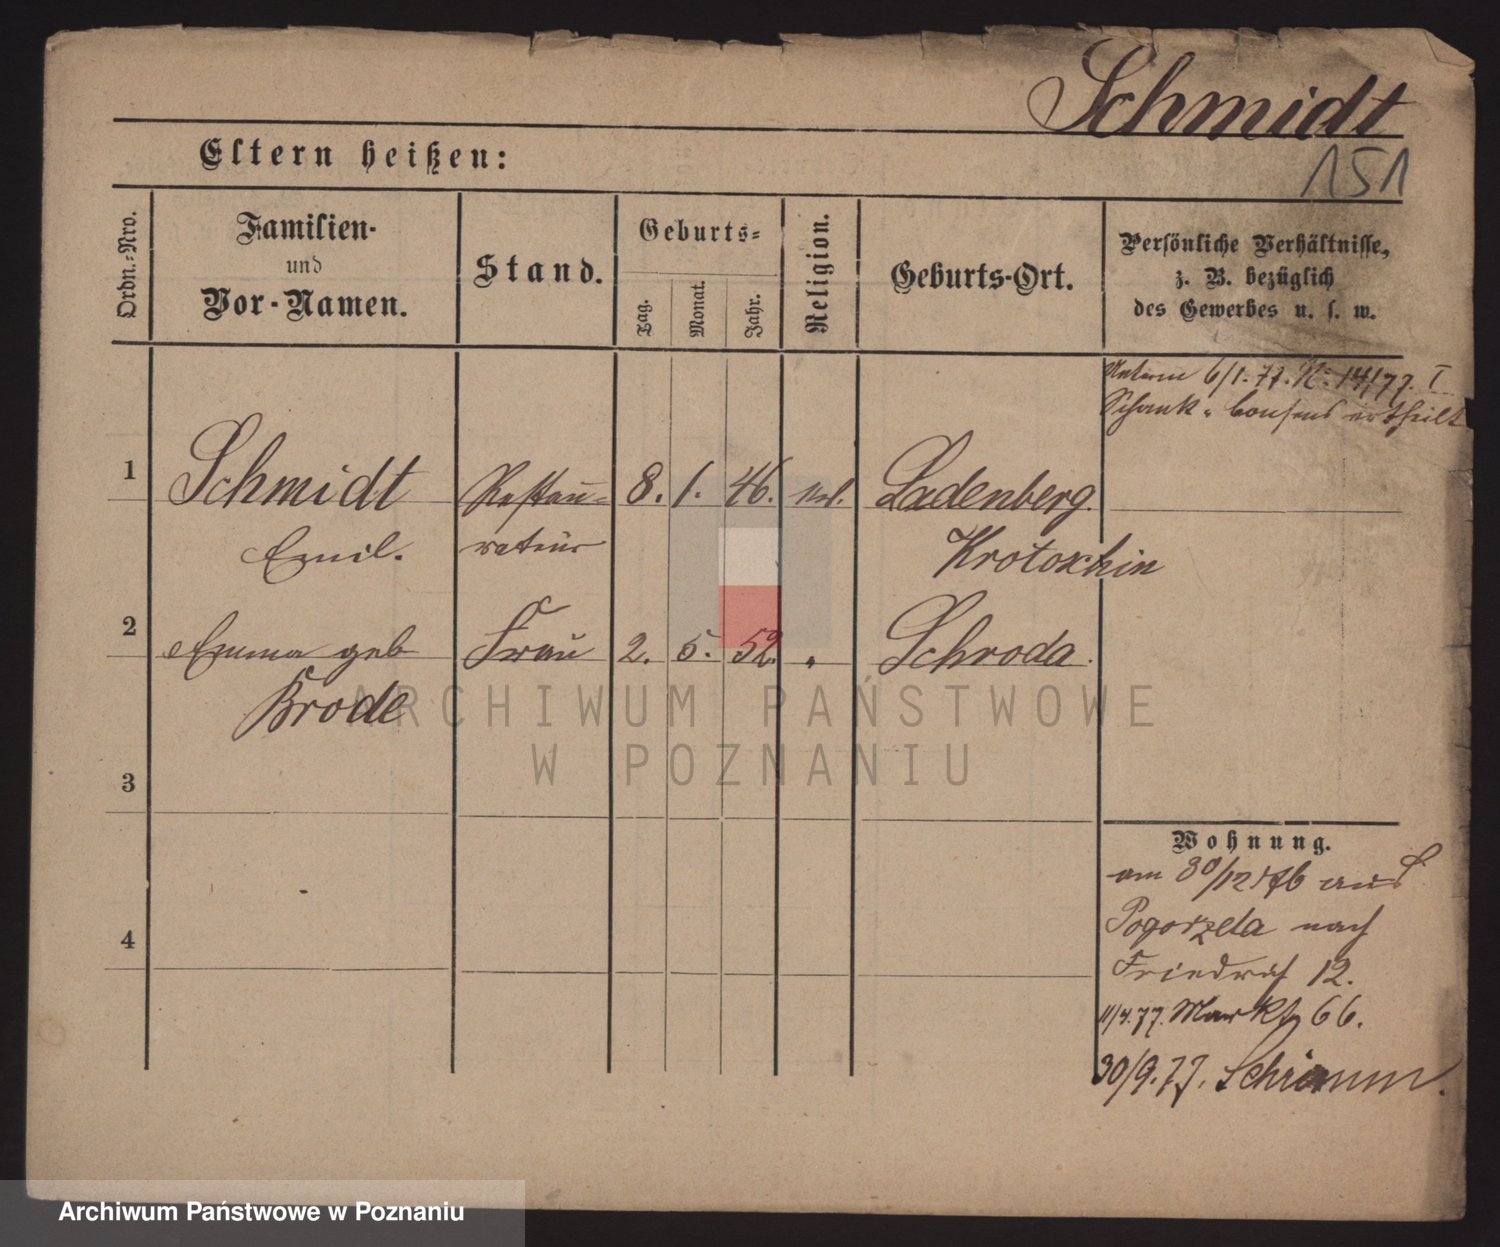 Schmidt
151
Eltern heißen:
Ordn.-Nro.
Familien-
und
Vor-Namen.
Stand.
Geburts-
Tag.
Monat.
Jahr.
Religion.
Geburts-Ort.
Persönliche Verhältnisse,
z. B. bezüglich
des Gewerbes u. s. w.
Unterm 6/1. 77. N: 14/77. I
Schank-Consens ertheilt
1 Schmidt Restau- 8. 1. 46. Ladenberg.
Emil. rateur Krotoschin
2 Emma geb Frau 2. 5. 52. " Schroda.
Brode
3
4
Wohnung.
am 30/12 76 aus
Pogorzela nach
Friedrst 12.
11/4. 77. Markt 66.
30/9. 77. Schrimm.
ARCHIWUM PAŃSTWOWE
W POZNANIU
Archiwum Państwowe w Poznaniu